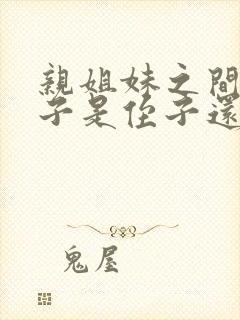 親姐妹之間
子是侄子還
鬼屋